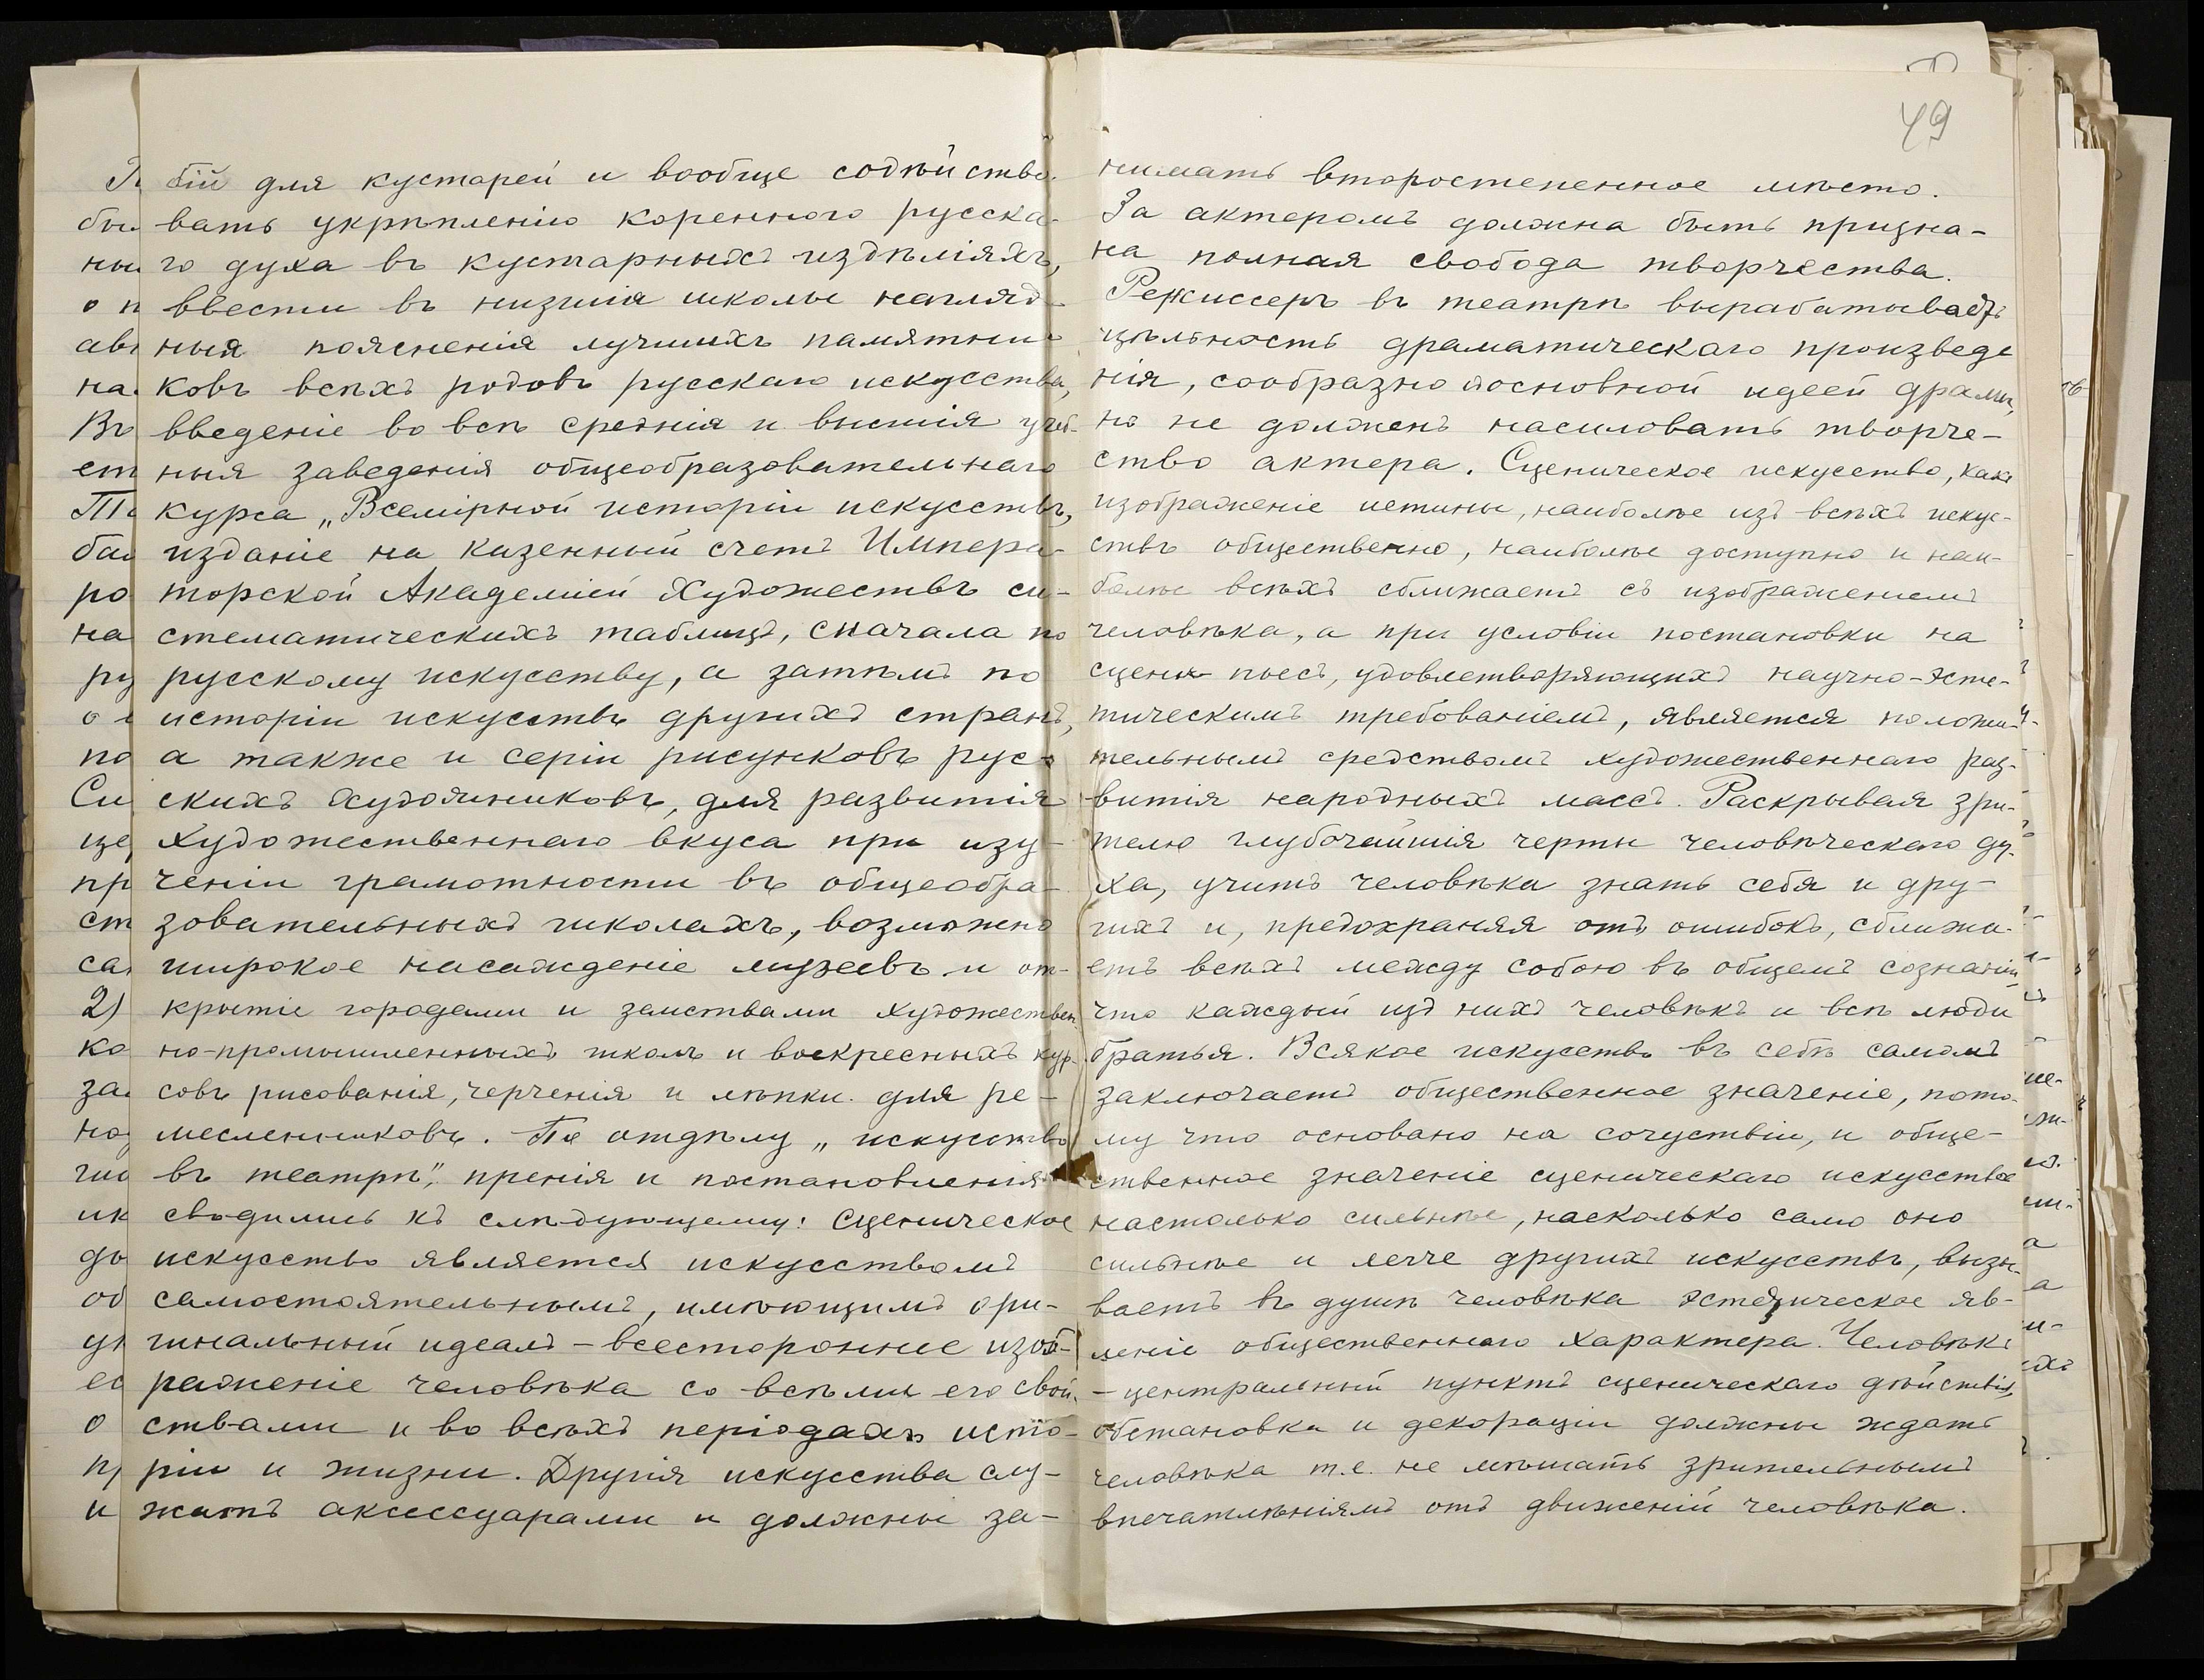 бій для кустарей и вообще содѣйство-
вать укрѣпленію кореннаго русска-
го духа въ кустарныхъ издѣліяхъ,
ввести въ низшія школы нагляд-
ныя поясненія лучшихъ памятни-
ковъ всѣхъ родовъ русскаго искусства,
введеніе во всѣ среднія и высшія учеб-
ныя заведенія общеобразовательнаго
курса „Всемірной исторіи искусствъ,
изданіе на казенный счетъ Импера-
торской Академіей Художествъ си-
стематическихъ таблицъ, сначала по
русскому искусству, а затѣмъ по
исторіи искусствъ другихъ странъ,
а также и серіи рисунковъ рус-
скихъ художниковъ, для развитія
художественнаго вкуса при изу-
ченіи грамотности въ общеобра-
зовательныхъ школахъ, возможно
широкое насажденіе музеевъ и от-
крытіе городами и земствами художествен
но-промышленныхъ школъ и воскресныхъ кур-
совъ рисованія, черченія и лѣпки для ре-
месленниковъ. По отдѣлу „искусство
въ театрѣ", пренія и постановленія
сводились къ слѣдующему: Сценическое
искусство является искусствомъ
самостоятельнымъ, имѣющимъ ори-
гинальный идеалъ – всестороннее изоб-
раженіе человѣка со всѣми его свой-
ствами и во всѣхъ періодахъ исто-
ріи и жизни. Другія искусства слу-
жатъ аксессуарами и должны за-
49
нимать второстепенное мѣсто.
За актеромъ должна быть призна-
на полная свобода творчества.
Режиссеръ въ театрѣ вырабатываетъ
цѣльность драматическаго произведе
нія, сообразно основной идеей драмы,
но не долженъ насиловать творче-
ство актера. Сценическое искусство, какъ
изображеніе истины, наиболѣе изъ всѣхъ искус-
ствъ общественно, наиболѣе доступно и наи-
болѣе всѣхъ сближаетъ съ изображеніемъ
человѣка, а при условіи постановки на
сценѣ пьесъ, удовлетворяющихъ научно-эсте-
тическимъ требованіемъ, является положи-
тельнымъ средствомъ художественнаго раз-
витія народныхъ массъ. Раскрывая зри-
телю глубочайшія черты человѣческаго ду-
ха, учитъ человѣка знать себя и дру-
гихъ и, предохраняя отъ ошибокъ, сближа-
етъ всѣхъ между собою въ общемъ сознаніи
что каждый изъ нихъ человѣкъ и всѣ люди
братья. Всякое искусство въ себѣ самомъ
заключаетъ общественное значеніе, пото-
му что основано на сочуствіи, и обще-
ственное значеніе сценическаго искусства
настолько сильнѣе, насколько само оно
сильнѣе и легче другихъ искусствъ, вызы-
ваетъ въ душѣ человѣка эстетическое яв-
леніе общественнаго характера. Человѣкъ
– центральный пунктъ сценическаго дѣйствія,
обстановка и декораціи должны ждать
человѣка т.е. не мѣшать зрительнымъ
впечатлѣніямъ отъ движеній человѣка.